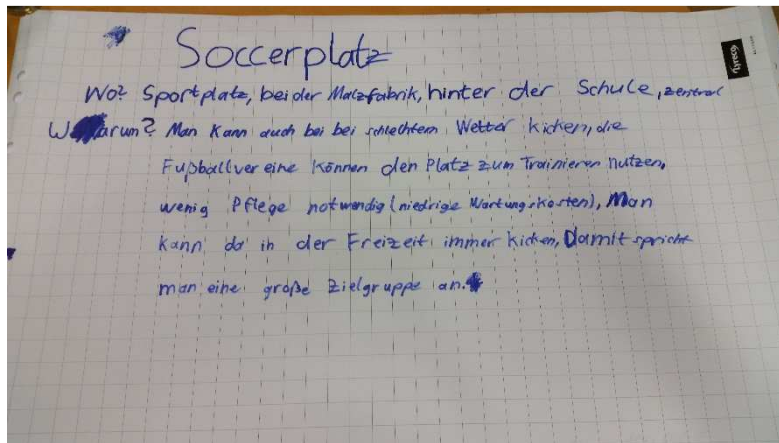 Soccerplatz
lyreco
Wo? Sportplatz, bei der Malzfabrik, hinter der Schule, zentral
Warum? Man kann auch bei bei schlechtem Wetter kicken, die
Fußballvereine können den Platz zum Trainieren nutzen,
wenig Pflege notwendig (niedrige Wartungskosten), Man
kann da in der Freizeit immer kicken, Damit spricht
man eine große Zielgruppe an.